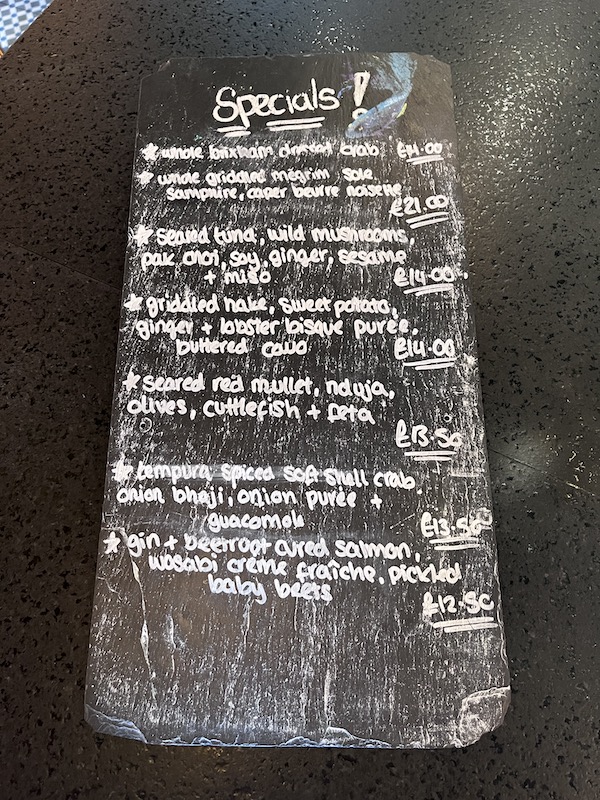 Specials!
★ whole brixham dressed crab £14.00
★ whole griddled megrim sole
samphire, caper beurre noisette
£21.00
★ Seared tuna, wild mushrooms,
pak choi, soy, ginger, sesame
+ miso £14.00
★ griddled hake, sweet potato,
ginger + lobster bisque purée,
buttered cavo £14.00
★ seared red mullet, nduja,
olives, cuttlefish + feta
£13.50
★ tempura spiced soft shell crab
onion bhaji, onion purée +
guacamole £13.50
★ gin + beetroot cured salmon,
wasabi crème fraîche, pickled
baby beets £12.50